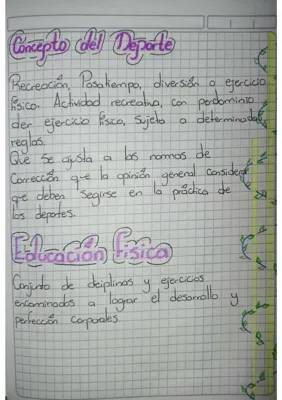 Concepto del Deporte
Recreación, Pasatiempo, diversión o ejercicio
físico. Actividad recreativa, con perdominio
der ejercicio físico, sujeto a determinadas
reglas.
Que se ajusta a las normas de
Corrección que la opinión general considera
que deben segirse en la práctica de
los deportes.
Educación física
Conjunto de diciplinas y ejercicios
encaminados a lograr el desarrollo y
perfección corporales.